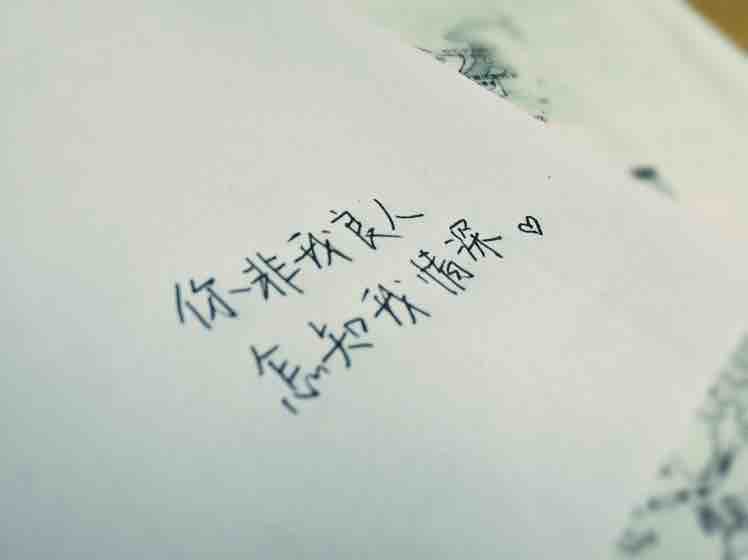 你非我良人
怎知我情深♡